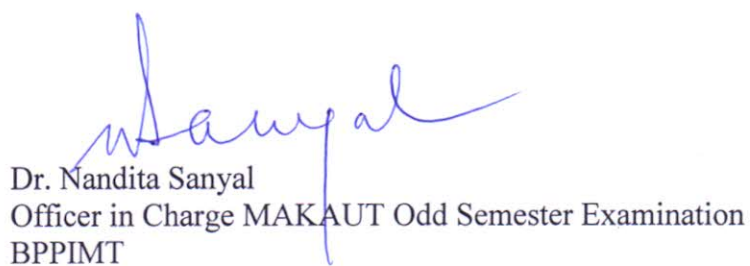 NSanyal
Dr. Nandita Sanyal
Officer in Charge MAKAUT Odd Semester Examination
BPPIMT